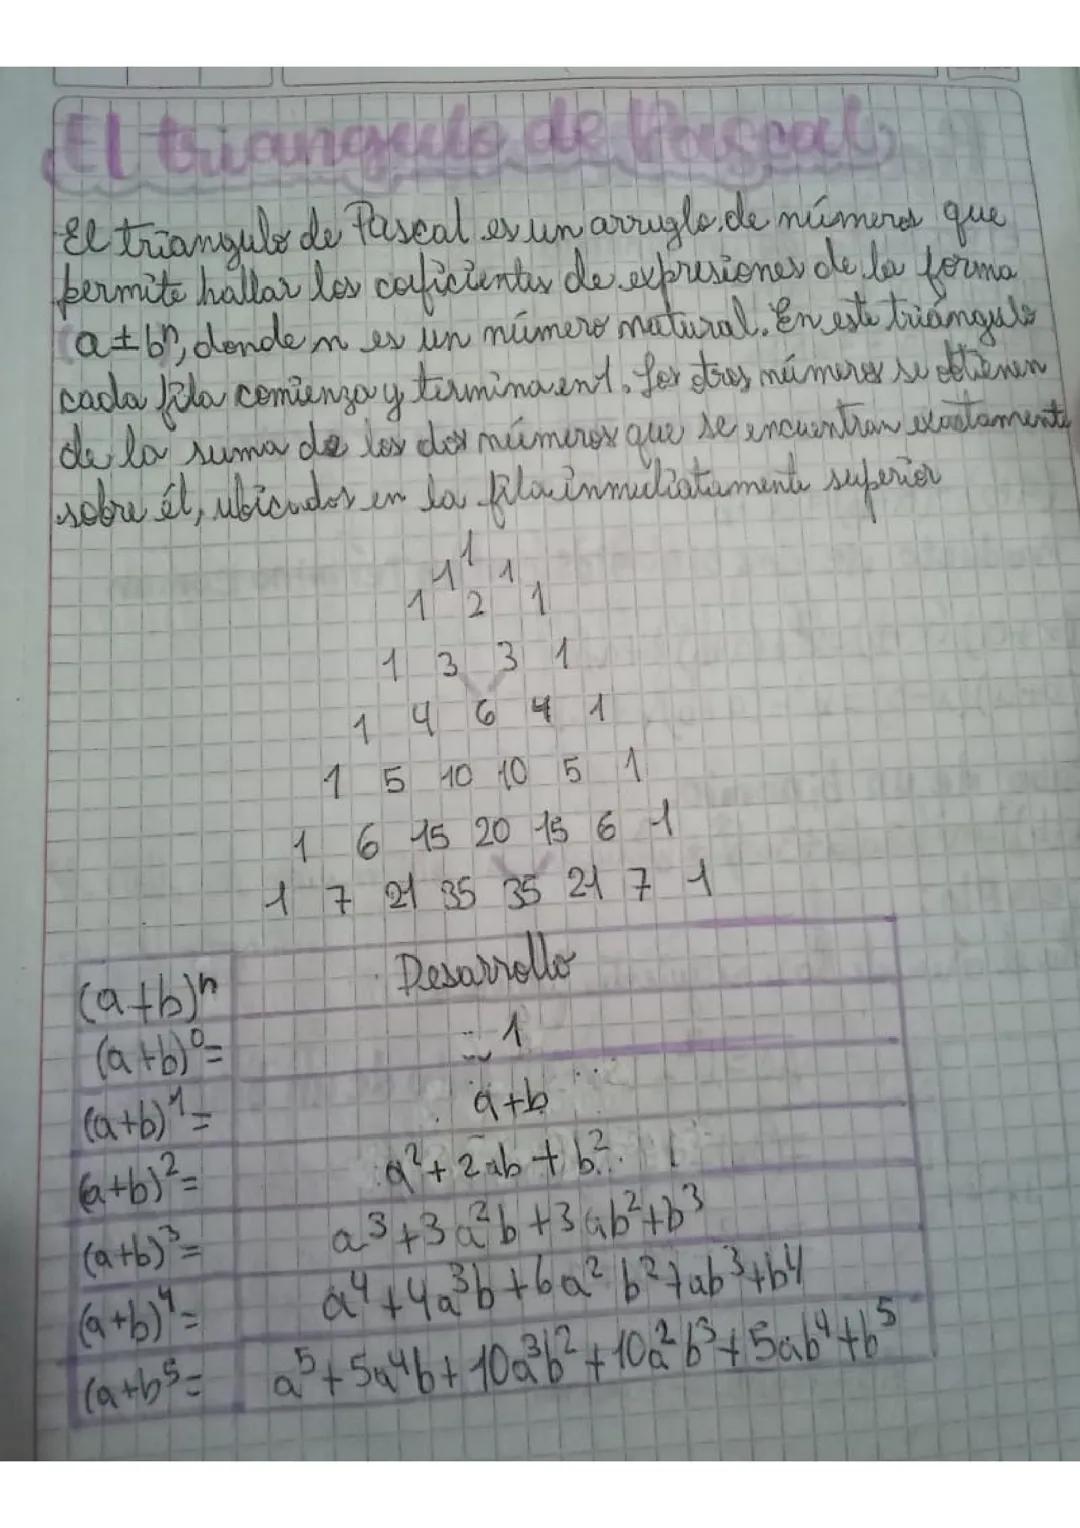 El triangulo de Pascal
El triangulo de Pascal es un arreglo de números que
permite hallar los coeficientes de expresiones de la forma
a±bⁿ, donde n es un número natural. En este triángulo
cada fila comienza y termina en 1. Los otros números se obtienen
de la suma de los dos números que se encuentran exactamente
sobre él, ubicados en la fila inmediatamente superior
1
1 1
1 2 1
1 3 3 1
1 4 6 4 1
1 5 10 10 5 1
1 6 15 20 15 6 1
1 7 21 35 35 21 7 1
(a+b)ⁿ Desarrollo
(a+b)⁰= 1
(a+b)¹= a+b
(a+b)²= a²+2ab+b²
(a+b)³= a³+3a²b+3ab²+b³
(a+b)⁴= a⁴+4a³b+6a²b²+ab³+b⁴
(a+b⁵= a⁵+5a⁴b+10a³b²+10a²b³+5ab⁴+b⁵